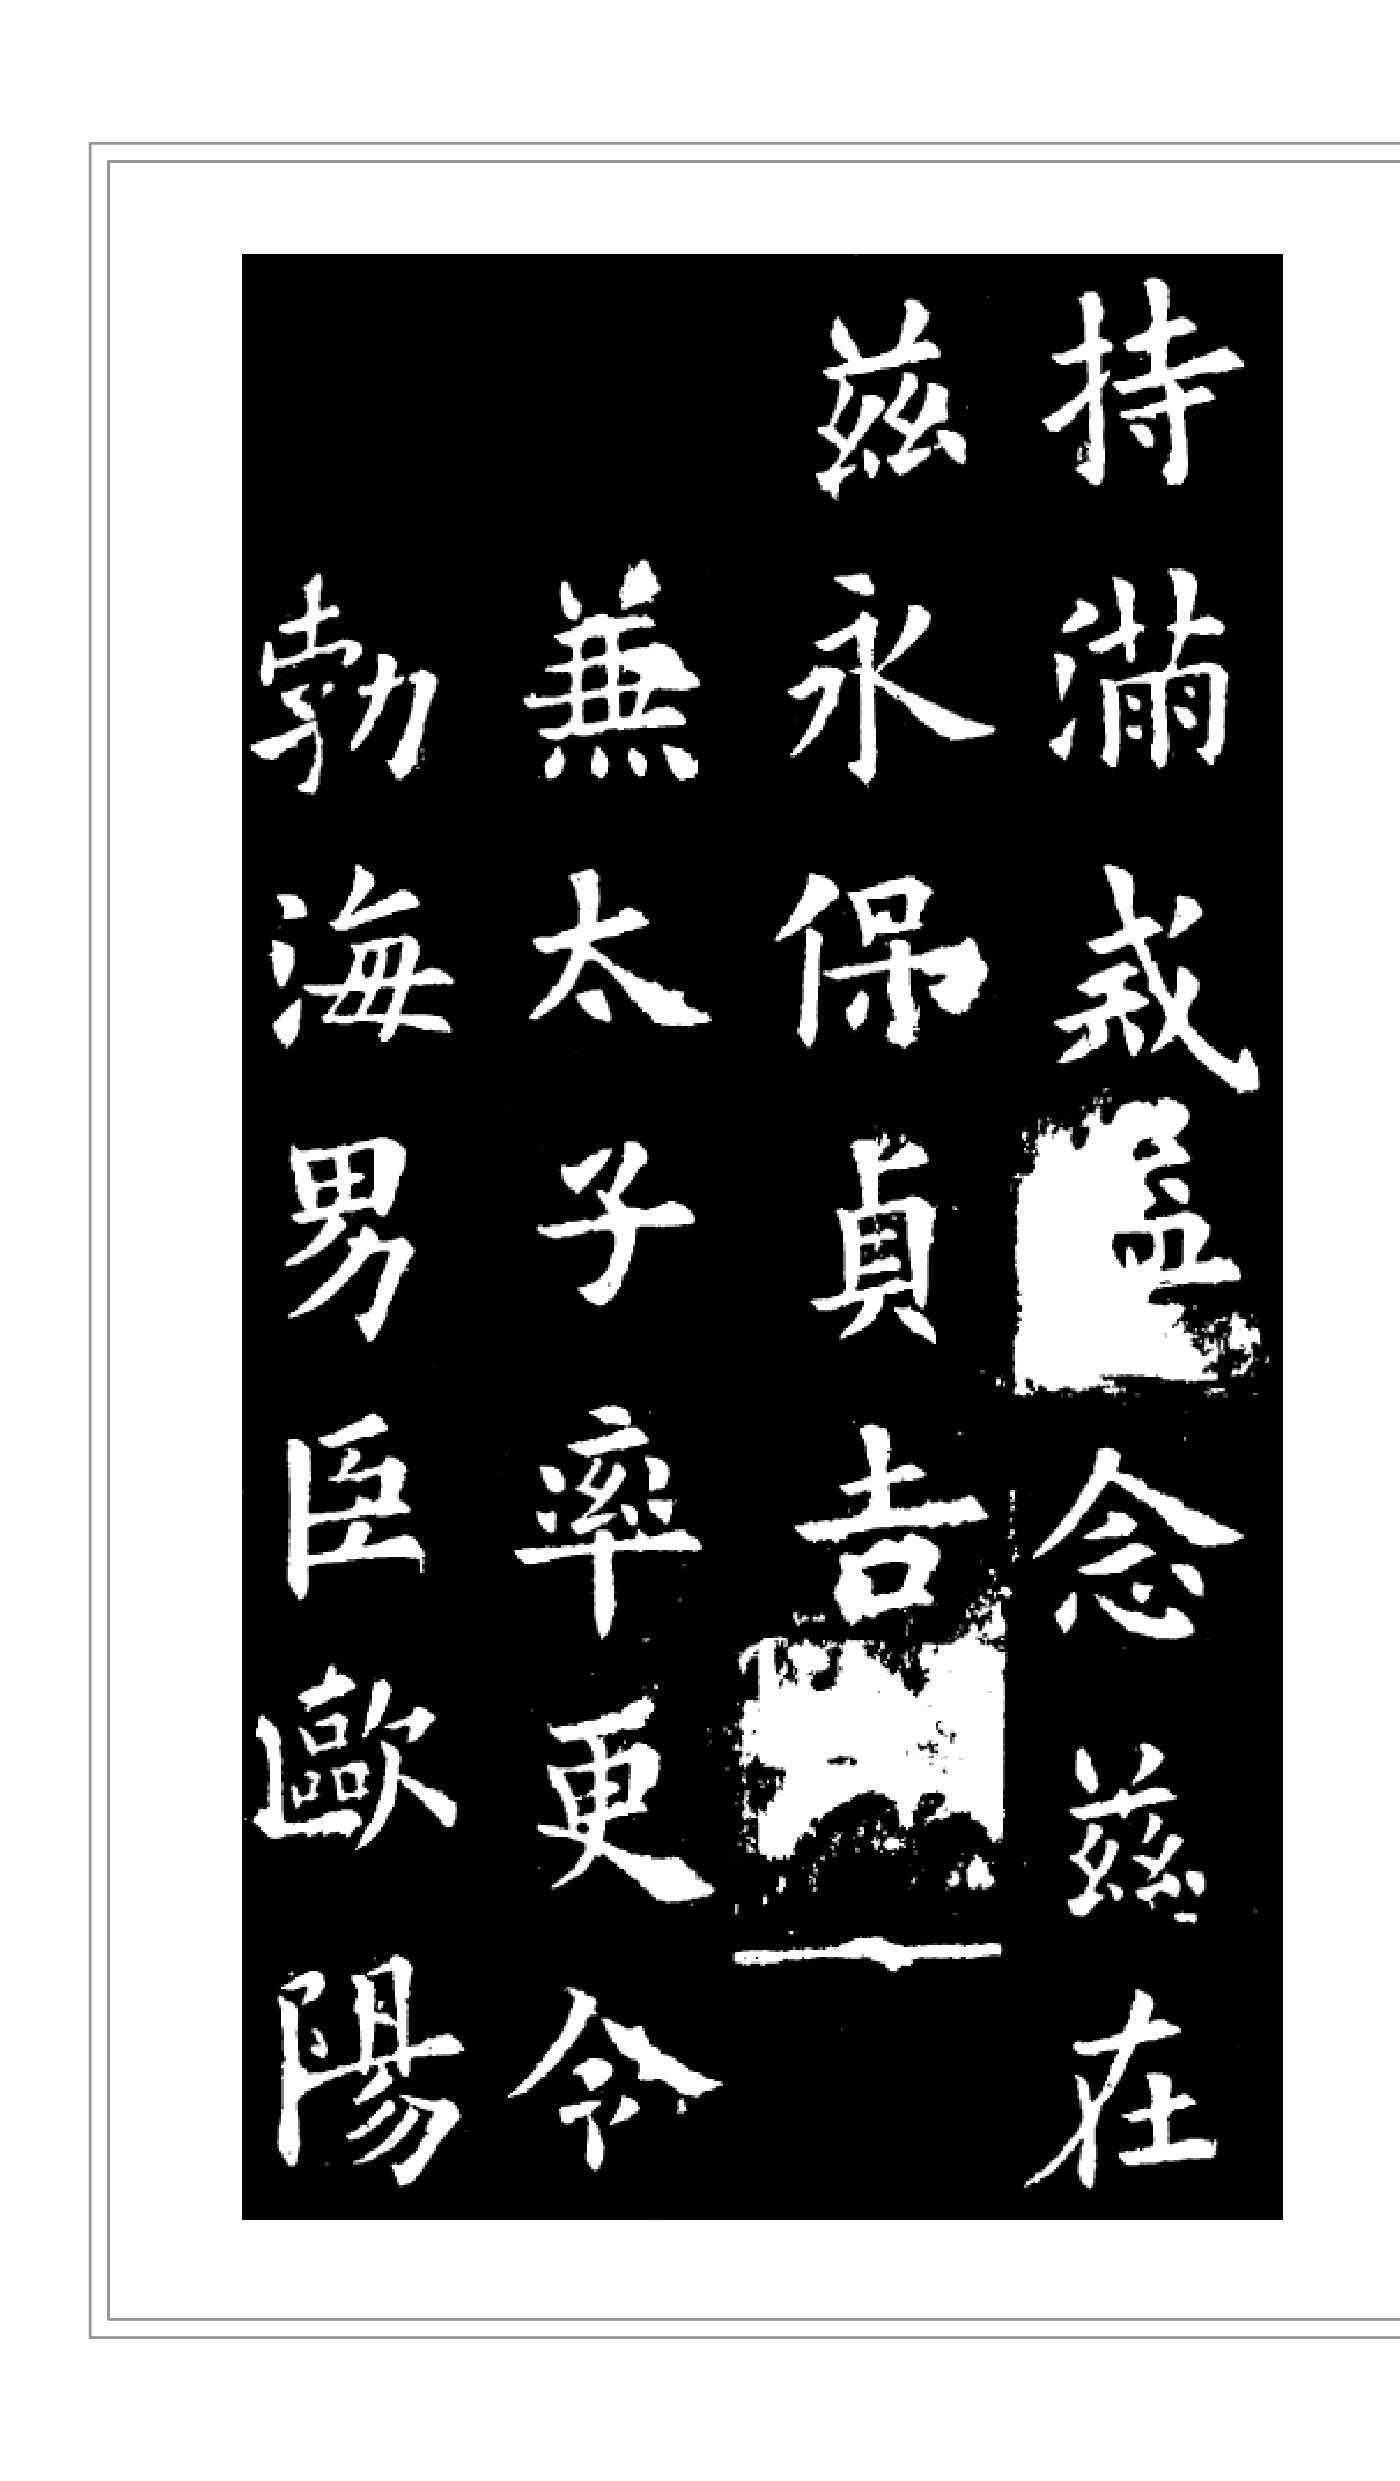 持滿戒盈念茲在
茲永保貞吉
兼太子率更令
勃海男臣歐陽